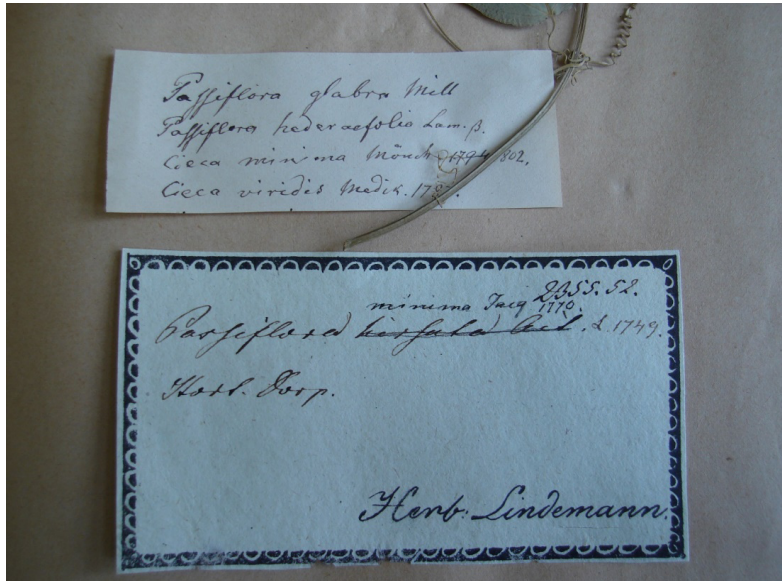 Passiflora glabra Mill
Passiflora hederaefolia Lam. β.
Cieca minima Mönch 1794 802.
Cieca viridis Medik. 1787.
2355. 52.
minima Jacq 1770.
Passiflora hirsuta . L 1749.
Hort. Dorp.
Herb: Lindemann.